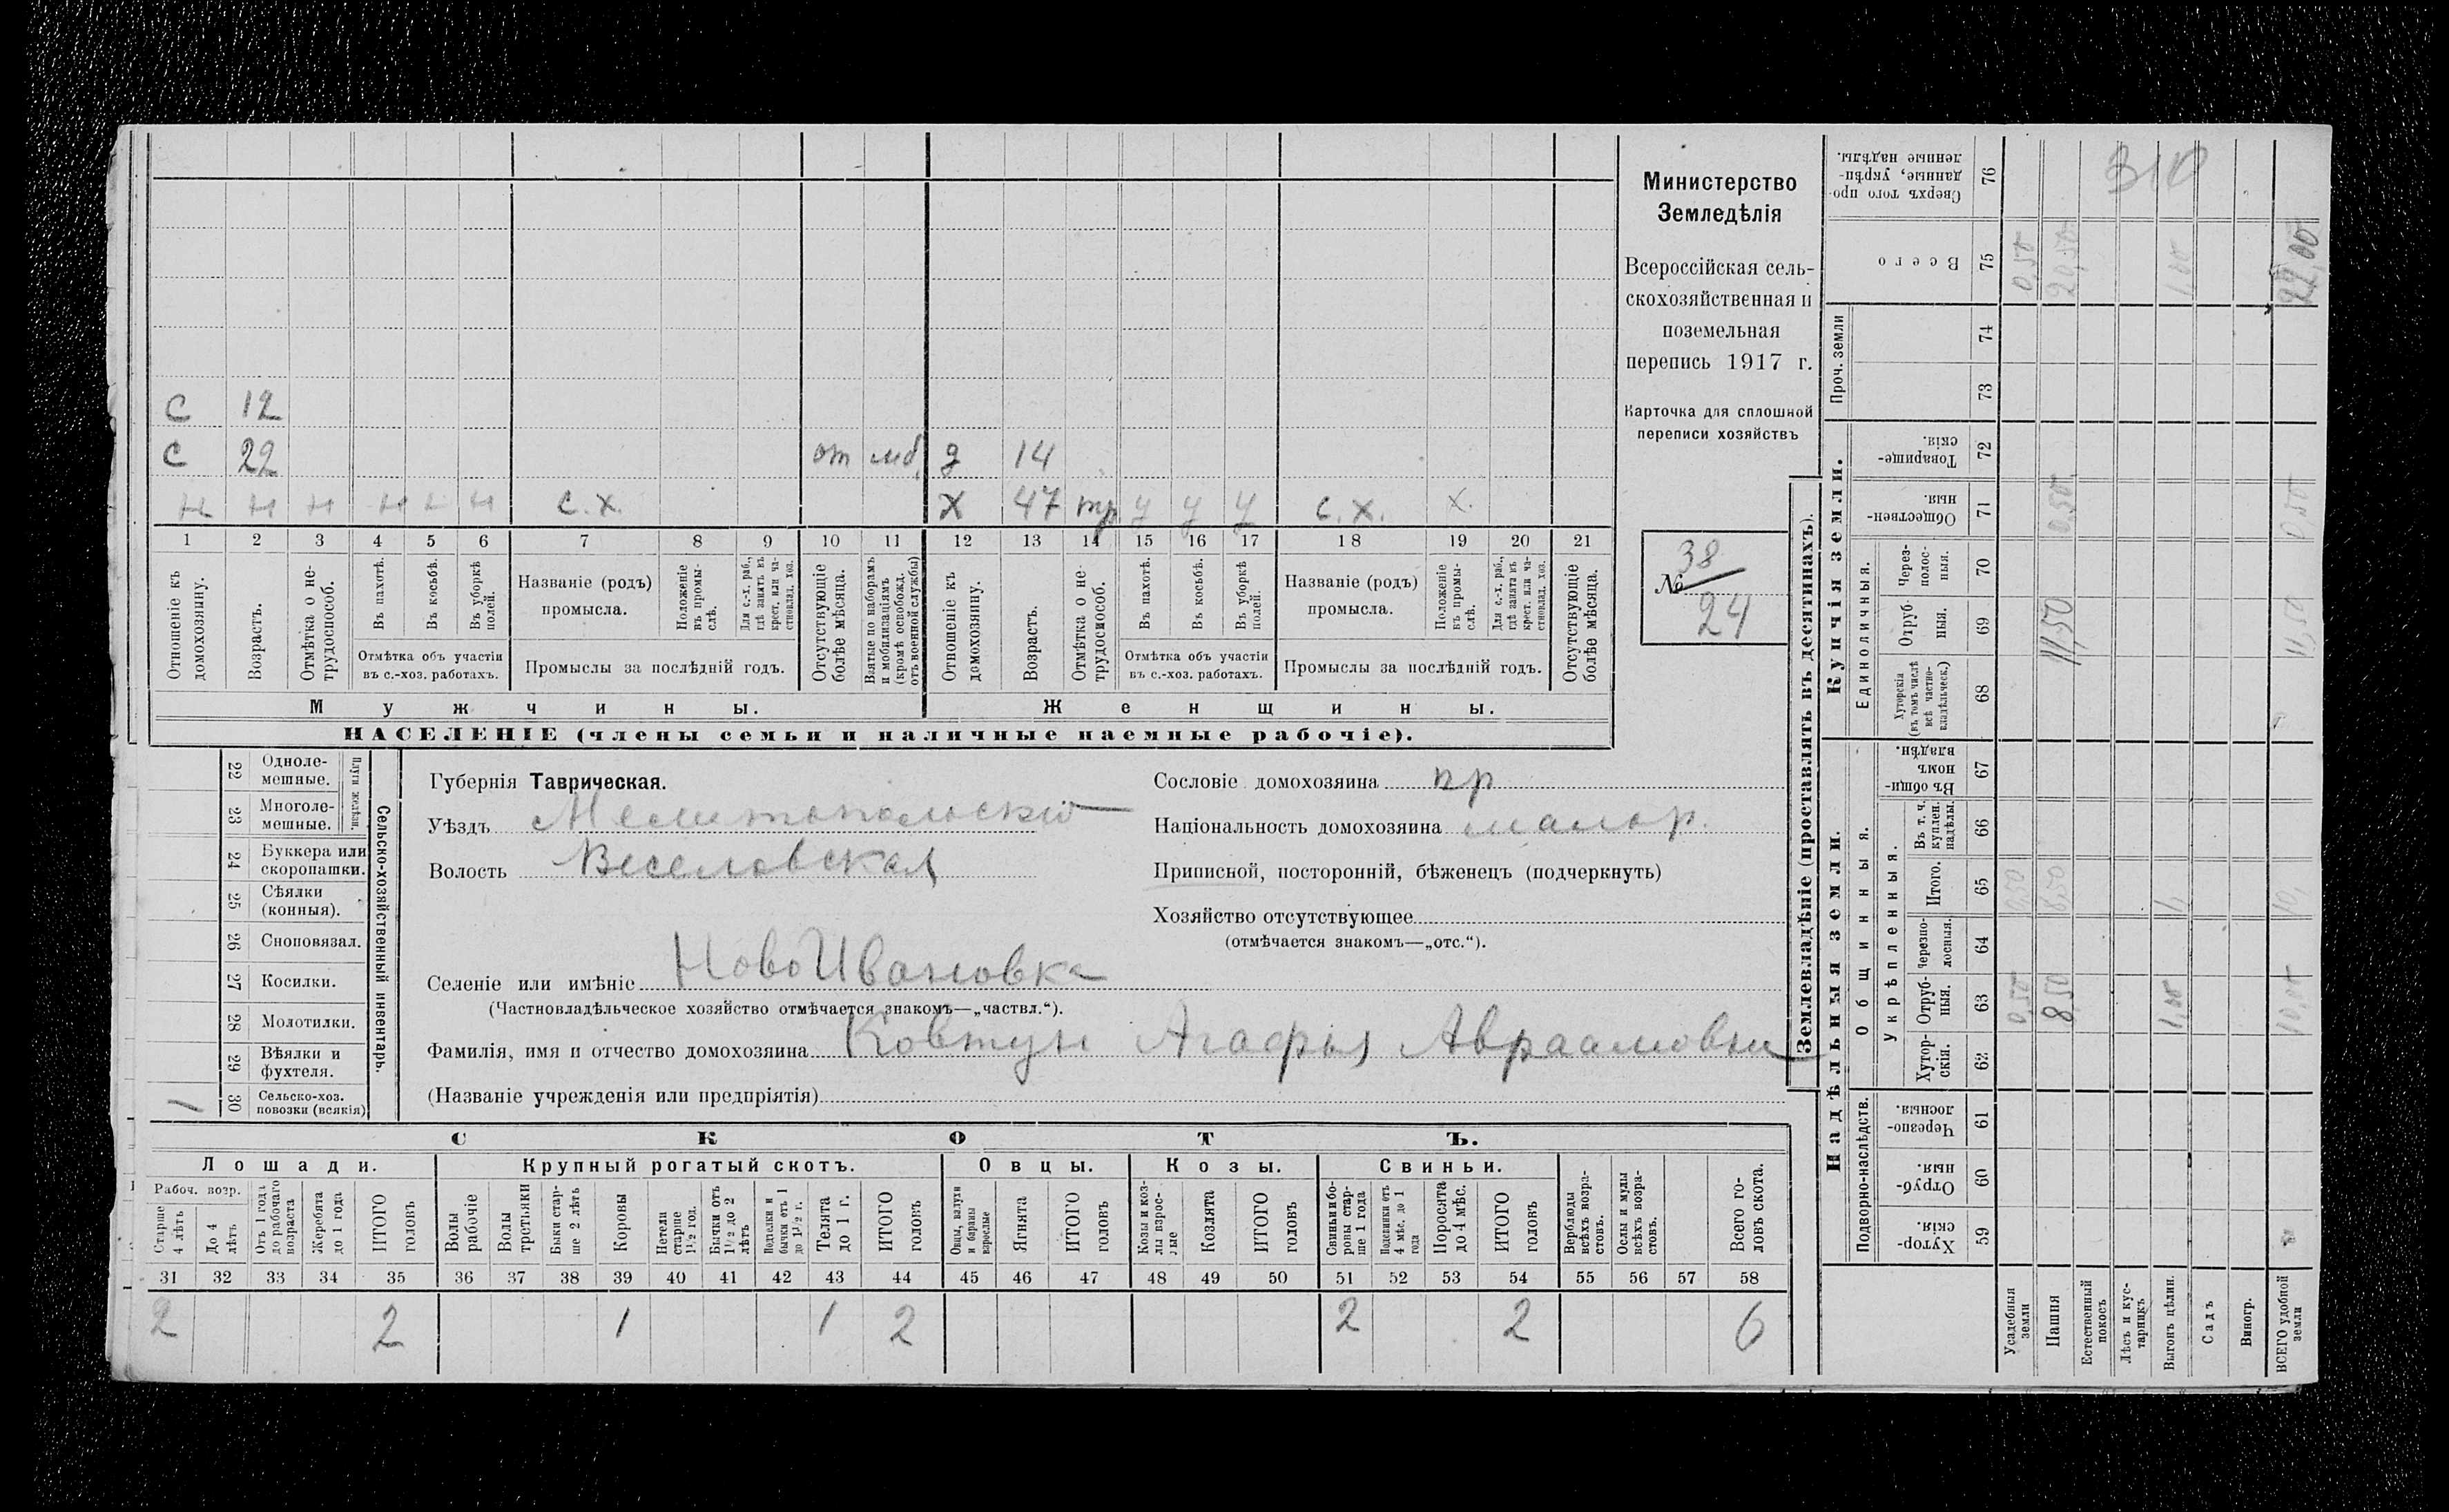 С 12
С 22 от мб. д 14
н н н н н н с.х. Х 47 тр у у у с.х. х.
1 2 3 4 5 6 7 8 9 10 11 12 13 14 15 16 17 18 19 20 21
Отношеніе къ домохозяину.
Возрастъ.
Отмѣтка о не-трудоспособ.
Въ пахотѣ.
Въ косьбѣ.
Въ уборкѣ полей.
Отмѣтка объ участіи
въ с.-хоз. работахъ.
Названіе (родъ)
промысла.
Положеніе въ промы-слѣ.
Для с.-х. раб., гдѣ занятъ въ крест. или ча-стновлад. хоз.
Промыслы за послѣдній годъ.
Отсутствующіе болѣе мѣсяца.
Взятые по наборамъ и мобилизаціямъ (кромѣ освобожд. отъ военной службы)
Отношеніе къ домохозяину.
Возрастъ.
Отмѣтка о не-трудоспособ.
Въ пахотѣ.
Въ косьбѣ.
Въ уборкѣ полей.
Отмѣтка объ участіи
въ с.-хоз. работахъ.
Названіе (родъ)
промысла.
Положеніе въ промы-слѣ.
Для с.-х. раб., гдѣ занята въ крест. или ча-стновлад. хоз.
Промыслы за послѣдній годъ.
Отсутствующіе болѣе мѣсяца.
Мужчины. Женщины.
НАСЕЛЕНІЕ (члены семьи и наличные наемные рабочіе).
Министерство
Земледѣлія
Всероссійская сель-
скохозяйственная и
поземельная
перепись 1917 г.
Карточка для сплошной
переписи хозяйствъ
№ 38
24
22 Однолемешные.
23 Многолемешные.
Плуги желѣзн.
24 Буккера или скоропашки.
25 Сѣялки (конныя).
26 Сноповязал.
27 Косилки.
28 Молотилки.
29 Вѣялки и фухтеля.
1 30 Сельско-хоз. повозки (всякія)
Сельско-хозяйственный инвентарь.
Губернія Таврическая.
Уѣздъ Мелитопольскій
Волость Веселовская
Селеніе или имѣніе НовоИвановка
(Частновладѣльческое хозяйство отмѣчается знакомъ—„частвл.“).
Фамилія, имя и отчество домохозяина Ковтун Агафья Авраамовна
(Названіе учрежденія или предпріятія)
Сословіе домохозяина кр
Національность домохозяина малор.
Приписной, посторонній, бѣженецъ (подчеркнуть)
Хозяйство отсутствующее
(отмѣчается знакомъ—„отс.“).
СКОТЪ.
Лошади. Крупный рогатый скотъ. Овцы. Козы. Свиньи.
Рабоч. возр.
Старше 4 лѣтъ
До 4 лѣтъ
Отъ 1 года до рабочаго возраста
Жеребята до 1 года
ИТОГО головъ
Волы рабочіе
Волы третьяки
Быки старше 2 лѣтъ
Коровы
Нетела старше 1 1/2 год.
Бычки отъ 1 1/2 до 2 лѣтъ
Подтелки и бычки отъ 1 до 1 1/2 г.
Телята до 1 г.
ИТОГО головъ
Овцы, валухи и бараны взрослые
Ягнята
ИТОГО головъ
Козы и козлы взрослые
Козлята
ИТОГО головъ
Свиньи и боровы старше 1 года
Подсвинки отъ 4 мѣс. до 1 года
Поросята до 4 мѣс.
ИТОГО головъ
Верблюды всѣхъ возрастовъ.
Ослы и мулы всѣхъ возрастовъ.
Всего головъ скота.
31 32 33 34 35 36 37 38 39 40 41 42 43 44 45 46 47 48 49 50 51 52 53 54 55 56 57 58
2 2 1 1 2 2 2 6
Землевладѣніе (проставлять въ десятинахъ).
Надѣльныя земли. Купчія земли. Проч. земли
Подворно-наслѣдств.
Общинныя.
Укрѣпленныя.
Единоличныя.
Хуторскія. 59
Отрубныя. 60
Черезполосныя. 61
Хуторскія. 62
Отрубныя. 63
Черезполосныя. 64
Итого. 65
Въ т. ч. куплен. надѣлы. 66
Въ общинномъ владѣн. 67
Хуторскія (въ томъ числѣ всѣ частновладѣльческ.) 68
Отрубныя. 69
Черезполосныя. 70
Общественныя. 71
Товарищескія. 72
73
74
Всего 75
Сверхъ того проданные, укрѣпленные надѣлы. 76
310
Усадебныя земли 0,50 0,50 0,50
Пашня 8,50 8,50 11,50 0,50 20,50
Естественный покосъ
Лѣсъ и кустарникъ
Выгонъ цѣлин. 1,00 1, 1,00
Садъ
Виногр.
ВСЕГО удобной земли 10,00 10, 11,50 0,50 22,00